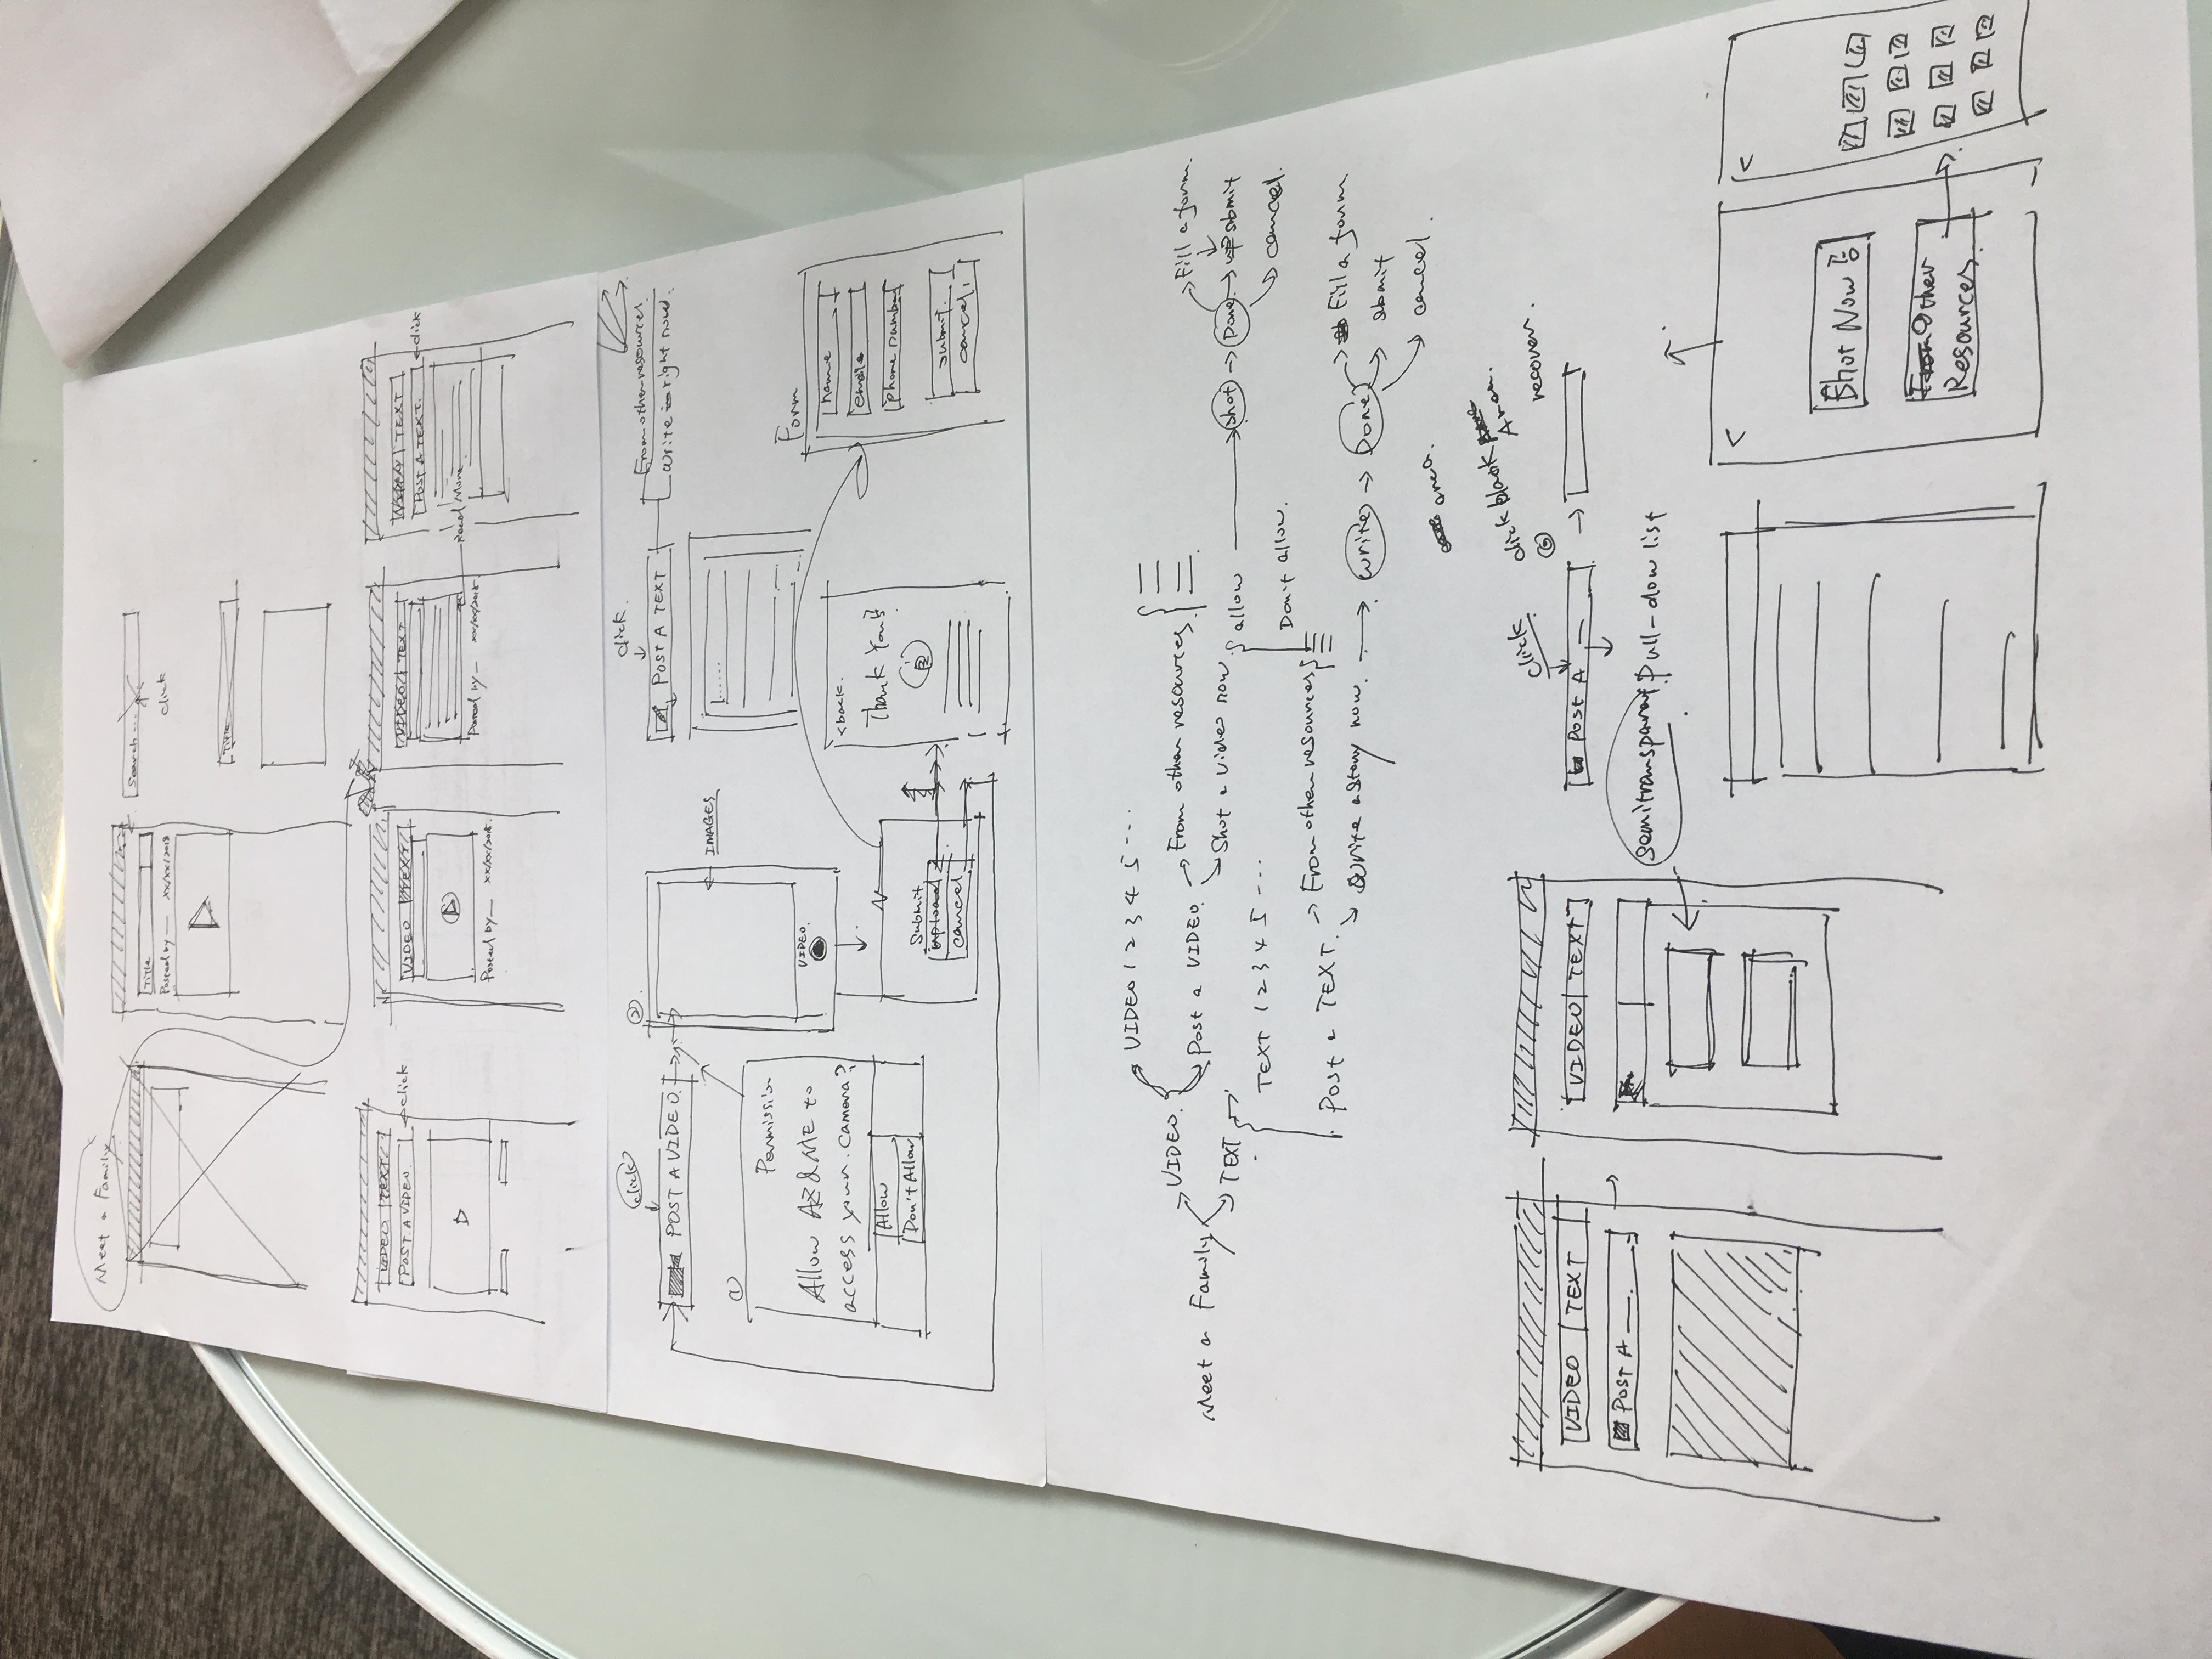 Meet a Family
Title
Posted by — xx/xx/2018
Search ...
click
Title
VIDEO | TEXT
POST A VIDEO.
click
VIDEO | TEXT
Posted by — xx/xx/2018.
VIDEO | TEXT
Posted by — xx/xx/2018.
Read More
VIDEO | TEXT
POST A TEXT.
click
click
POST A VIDEO.
①
Permission
Allow AZ&ME to
access your camera?
Allow
Don't Allow
②
IMAGES
VIDEO.
Submit
upload
cancel
click.
POST A TEXT
From other resources.
write right now.
<back.
Thank You!
Form
name
email
phone number
submit.
cancel.
Meet a Family
VIDEO.
VIDEO 1 2 3 4 5 ...
Post a VIDEO.
From other resources
Shot a video now
allow
Don't allow.
shot
Done
Fill a form.
submit
cancel.
TEXT
TEXT 1 2 3 4 5 ...
Post a TEXT.
From other resources
Write a story now.
write
Done
Fill a form.
submit
cancel.
area.
click blank
Area.
recover.
VIDEO | TEXT
POST A —.
VIDEO | TEXT
click
POST A —
semitransparat Pull-dow list
<
Shot Now
From Other
Resources.
<